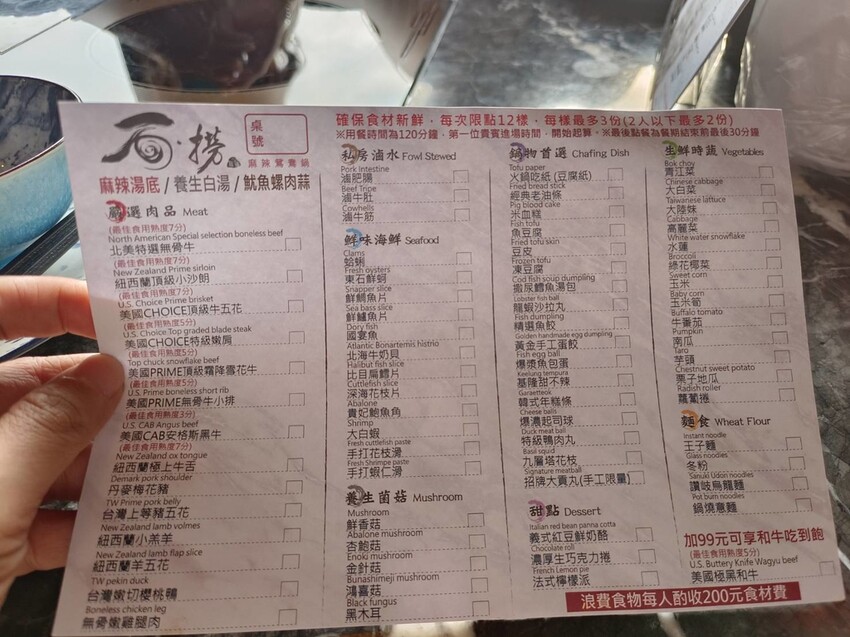 石·撈
麻辣鴛鴦鍋
桌號
麻辣湯底 / 養生白湯 / 魷魚螺肉蒜
確保食材新鮮，每次限點12樣，每樣最多3份(2人以下最多2份)
※用餐時間為120分鐘，第一位貴賓進場時間，開始起算。※最後點餐為餐期結束前最後30分鐘
嚴選肉品 Meat
(最佳食用熟度7分)
North American Special selection boneless beef
北美特選無骨牛
(最佳食用熟度7分)
New Zealand Prime sirloin
紐西蘭頂級小沙朗
(最佳食用熟度7分)
U.S. Choice Prime brisket
美國CHOICE頂級牛五花
(最佳食用熟度5分)
U.S. Choice Top graded blade steak
美國CHOICE特級嫩肩
(最佳食用熟度5分)
Top chuck snowflake beef
美國PRIME頂級霜降雪花牛
(最佳食用熟度5分)
U.S. Prime boneless short rib
美國PRIME無骨牛小排
(最佳食用熟度3分)
U.S. CAB Angus beef
美國CAB安格斯黑牛
(最佳食用熟度7分)
New Zealand ox tongue
紐西蘭極上牛舌
Demark pork shoulder
丹麥梅花豬
TW Prime pork belly
台灣上等豬五花
New Zealand lamb volmes
紐西蘭小羔羊
New Zealand lamb flap slice
紐西蘭羊五花
TW pekin duck
台灣嫩切櫻桃鴨
Boneless chicken leg
無骨嫩雞腿肉
私房滷水 Fowl Stewed
Pork Intestine
滷肥腸
Beef Tripe
滷牛肚
Cowhells
滷牛筋
鮮味海鮮 Seafood
Clams
蛤蜊
Fresh oysters
東石鮮蚵
Snapper slice
鮮鯛魚片
Sea bass slice
鮮鱸魚片
Dory fish
國宴魚
Atlantic Bonartemis histrio
北海牛奶貝
Halibut fish slice
比目扁鱈片
Cuttlefish slice
深海花枝片
Abalone
貴妃鮑魚角
Shrimp
大白蝦
Fresh cuttlefish paste
手打花枝滑
Fresh Shrimpe paste
手打蝦仁滑
養生菌菇 Mushroom
Mushroom
鮮香菇
Abalone mushroom
杏鮑菇
Enoki mushroom
金針菇
Bunashimeji mushroom
鴻喜菇
Black fungus
黑木耳
鍋物首選 Chafing Dish
Tofu paper
火鍋吧紙 (豆腐紙)
Fried bread stick
經典老油條
Pig blood cake
米血糕
Fish tofu
魚豆腐
Fried tofu skin
豆皮
Frozen tofu
凍豆腐
Cod fish soup dumpling
撒尿鱈魚湯包
Lobster fish ball
龍蝦沙拉丸
Fish dumpling
精選魚餃
Golden handmade egg dumpling
黃金手工蛋餃
Fish egg ball
爆漿魚包蛋
Keelung tempura
基隆甜不辣
Garaetteok
韓式年糕條
Cheese balls
爆濃起司球
Duck meat ball
特級鴨肉丸
Basil squid
九層塔花枝
Signature meatball
招牌大貢丸(手工限量)
甜點 Dessert
Italian red bean panna cotta
義式紅豆鮮奶酪
Chocolate roll
濃厚生巧克力捲
French Lemon pie
法式檸檬派
生鮮時蔬 Vegetables
Bok choy
青江菜
Chinese cabbage
大白菜
Taiwanese lattuce
大陸妹
Cabbage
高麗菜
White water snowflake
水蓮
Broccoli
綠花椰菜
Sweet corn
玉米
Baby corn
玉米筍
Buffalo tomato
牛番茄
Pumpkin
南瓜
Taro
芋頭
Chestnut sweet potato
栗子地瓜
Radish roller
蘿蔔捲
麵食 Wheat Flour
Instant noodle
王子麵
Glass noodles
冬粉
Sanuki Udon noodles
讚岐烏龍麵
Pot burn noodles
鍋燒意麵
加99元可享和牛吃到飽
(最佳食用熟度5分)
U.S. Buttery Knife Wagyu beef
美國極黑和牛
浪費食物每人酌收200元食材費